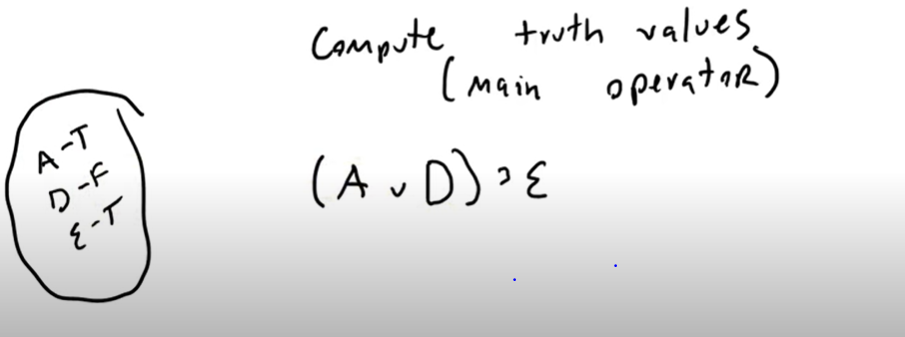 Compute truth values
(main operator)
A-T
D-F
E-T
(A v D) ⊃ E